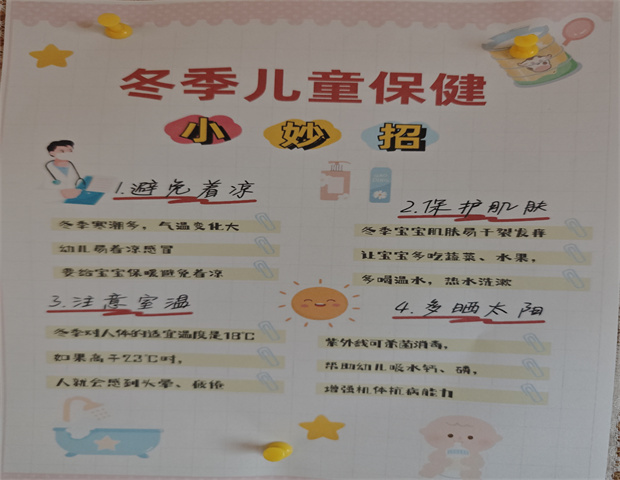 冬季儿童保健
小妙招
1.避免着凉
冬季寒潮多，气温变化大
幼儿易着凉感冒
要给宝宝保暖避免着凉
2.保护肌肤
冬季宝宝肌肤易干裂发痒
让宝宝多吃蔬菜、水果，
多喝温水，热水洗漱
3.注意室温
冬季对人体的适宜温度是18℃
如果高于23℃时，
人就会感到头晕、疲倦
4.多晒太阳
紫外线可杀菌消毒，
帮助幼儿吸水钙、磷，
增强机体抗病能力